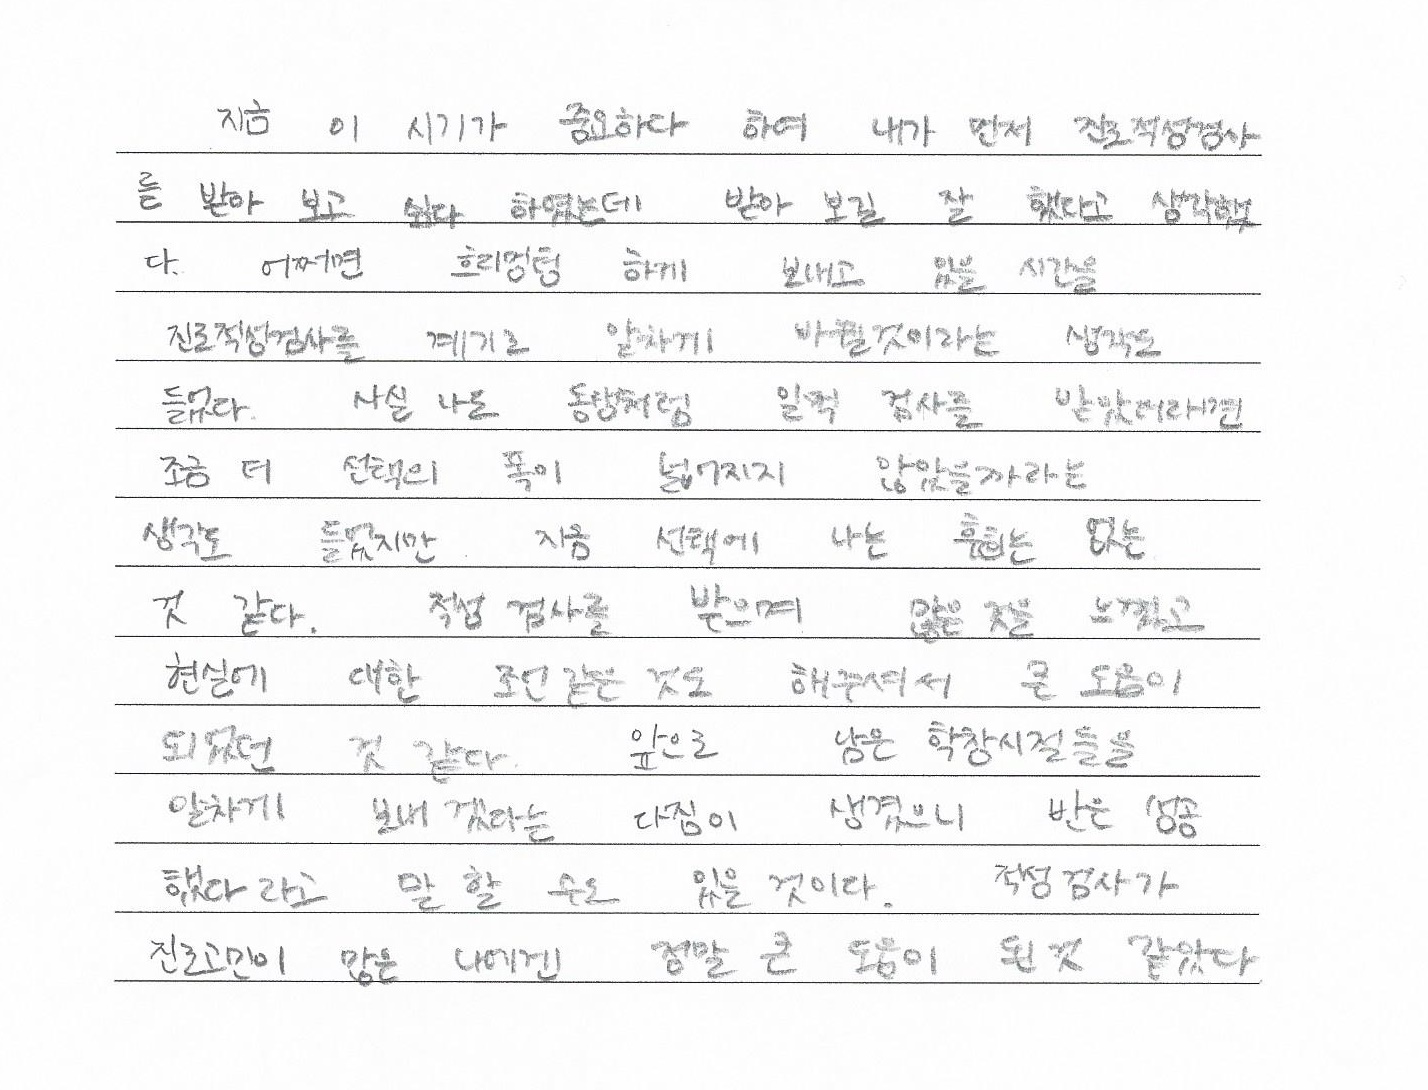 지금 이 시기가 중요하다 하여 내가 먼저 진로적성검사
를 받아 보고 싶다 하였는데 받아 보길 잘 했다고 생각했
다. 어쩌면 흐리멍텅 하게 보내고 있을 시간을
진로적성검사를 계기로 알차게 바뀔것이라는 생각도
들었다. 사실 나도 동생처럼 일찍 검사를 받았더라면
조금 더 선택의 폭이 넓어지지 않았을까라는
생각도 들었지만 지금 선택에 나는 후회는 없는
것 같다. 적성 검사를 받으며 많은 것을 느꼈고
현실에 대한 조언 같은 것도 해주셔서 큰 도움이
되었던 것 같다. 앞으로 남은 학창시절들을
알차게 보내 겠다는 다짐이 생겼으니 반은 성공
했다 라고 말 할 수도 있을 것이다. 적성검사가
진로고민이 많은 나에겐 정말 큰 도움이 된 것 같았다